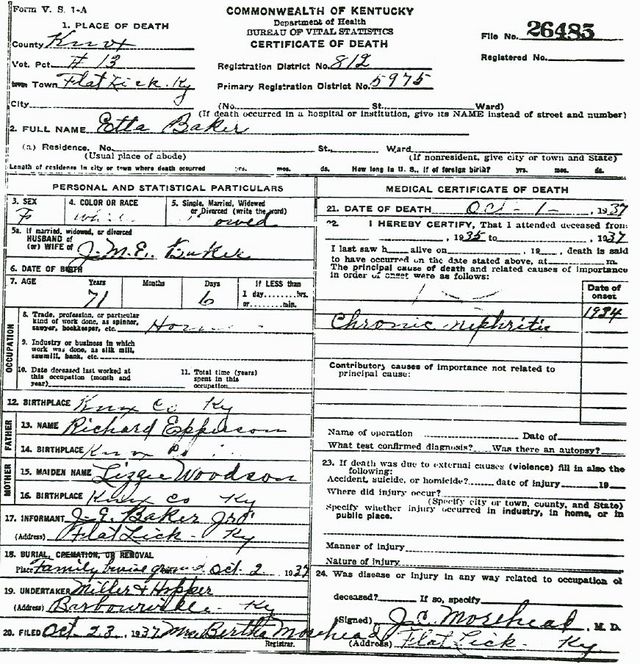 Form V. S. 1-A
COMMONWEALTH OF KENTUCKY
Department of Health
BUREAU OF VITAL STATISTICS
CERTIFICATE OF DEATH
File No. 26483
Registered No.
1. PLACE OF DEATH
County Knox
Vot. Pct # 13
Town Flat Lick. Ky
City
Registration District No. 812
Primary Registration District No. 5975
(No. St. Ward)
(If death occurred in a hospital or institution, give its NAME instead of street and number)
2. FULL NAME Etta Baker
(a) Residence. No. St., Ward.
(Usual place of abode) (If nonresident, give city or town and State)
Length of residence in city or town where death occurred yrs. mos. ds. How long in U. S., if of foreign birth? yrs. mos. ds.
PERSONAL AND STATISTICAL PARTICULARS
3. SEX
F
4. COLOR OR RACE
5. Single, Married, Widowed
or Divorced (write the word)
owed
5a. If married, widowed, or divorced
HUSBAND of
(or) WIFE of J. M. E. Baker
6. DATE OF BIRTH
7. AGE Years Months Days If LESS than
71 6 1 day......hrs.
or......min.
OCCUPATION
8. Trade, profession, or particular
kind of work done, as spinner,
sawyer, bookkeeper, etc.
9. Industry or business in which
work was done, as silk mill,
sawmill, bank, etc.
10. Date deceased last worked at
this occupation (month and
year)
11. Total time (years)
spent in this
occupation
12. BIRTHPLACE Knox Co Ky
FATHER
13. NAME Richard Epperson
14. BIRTHPLACE Knox
MOTHER
15. MAIDEN NAME Lizzie Woodson
16. BIRTHPLACE Knox Co Ky
17. INFORMANT J. E. Baker Jr
(Address) Flat Lick. Ky
18. BURIAL, CREMATION, OR REMOVAL
Place Family ground Oct 2 1937
19. UNDERTAKER Miller & Hopper
(Address) Barbourville Ky
20. FILED Oct 23, 1937 Mrs Bertha Mosehead
Registrar.
MEDICAL CERTIFICATE OF DEATH
21. DATE OF DEATH Oct - 1 - , 1937
22. I HEREBY CERTIFY, That I attended deceased from
, 1935 to , 1937
I last saw h alive on , 19 , death is said
to have occurred on the date stated above, at m.
The principal cause of death and related causes of importance
in order of onset were as follows:
Date of
onset
Chronic nephritis 1934
Contributory causes of importance not related to
principal cause:
Name of operation Date of
What test confirmed diagnosis? Was there an autopsy?
23. If death was due to external causes (violence) fill in also the
following:
Accident, suicide, or homicide? date of injury 19
Where did injury occur?
(Specify city or town, county, and State)
Specify whether injury occurred in industry, in home, or in
public place.
Manner of injury
Nature of injury
24. Was disease or injury in any way related to occupation of
deceased? If so, specify
(Signed) J. C. Mosehead, M. D.
(Address) Flat Lick. Ky